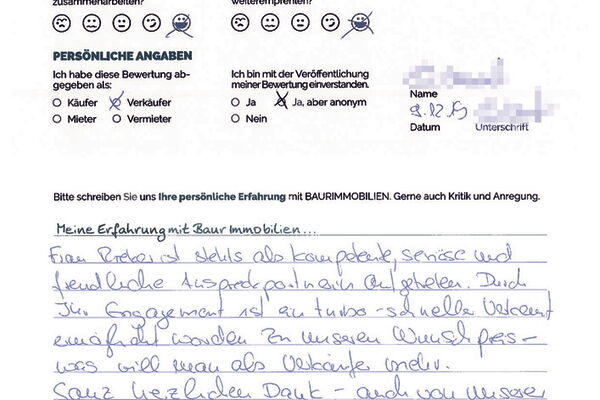 zusammenarbeiten?
weiterempfehlen?
PERSÖNLICHE ANGABEN
Ich habe diese Bewertung ab-
gegeben als:
Käufer Verkäufer
Mieter Vermieter
Ich bin mit der Veröffentlichung
meiner Bewertung einverstanden.
Ja Ja, aber anonym
Nein
Name
9.12.19
Datum Unterschrift
Bitte schreiben Sie uns Ihre persönliche Erfahrung mit BAURIMMOBILIEN. Gerne auch Kritik und Anregung.
Meine Erfahrung mit Baur Immobilien...
Frau ist stehts als kompetente, seriöse und
freundliche Ansprechpartnerin aufgetreten. Durch
Ihr Engagement ist ein turbo-schneller Verkauf
ermöglicht worden zu unseren Wunschpreis -
was will man als Verkäufer mehr.
Ganz herzlichen Dank - auch von unserer